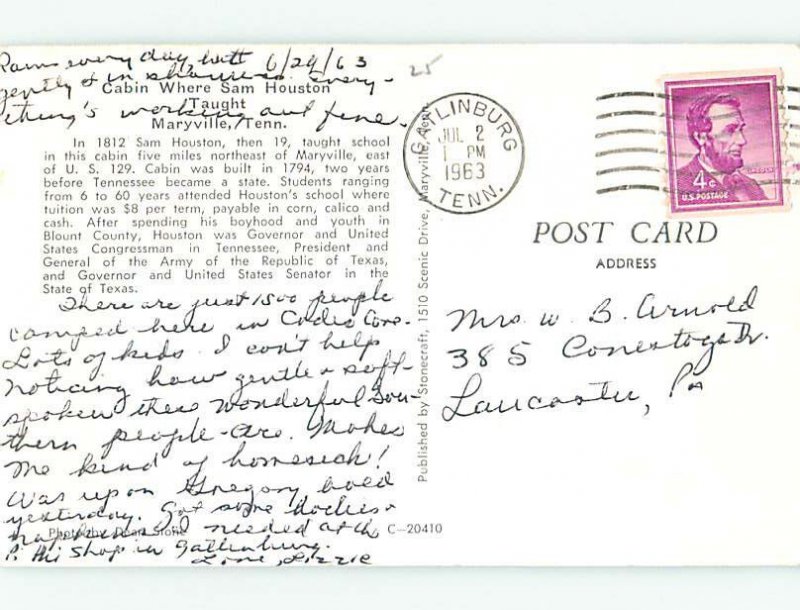 Rains every day, but 6/29/63
gently & in showers. Every-
thing's working out fine.
25
Cabin Where Sam Houston
Taught
Maryville, Tenn.
In 1812 Sam Houston, then 19, taught school
in this cabin five miles northeast of Maryville, east
of U. S. 129. Cabin was built in 1794, two years
before Tennessee became a state. Students ranging
from 6 to 60 years attended Houston's school where
tuition was $8 per term, payable in corn, calico and
cash. After spending his boyhood and youth in
Blount County, Houston was Governor and United
States Congressman in Tennessee, President and
General of the Army of the Republic of Texas,
and Governor and United States Senator in the
State of Texas.
There are just 1500 people
camped here in Cades Cove.
Lots of kids. I can't help
noticing how gentle & soft-
spoken these wonderful Sou-
thern people are. Makes
me kind of homesick!
Was up on Gregory bald
yesterday. Got some
I needed at the
P. Phi Shop in Gatlinburg.
Love, Lizzie
Photo by Dean Stone
C-20410
Published by Stonecraft, 1510 Scenic Drive, Maryville, Tenn.
GATLINBURG
JUL 2
1 PM
1963
TENN.
LINCOLN
4¢
U.S. POSTAGE
POST CARD
ADDRESS
Mrs. W. B. Arnold
385 Conestoga Dr.
Lancaster, Pa